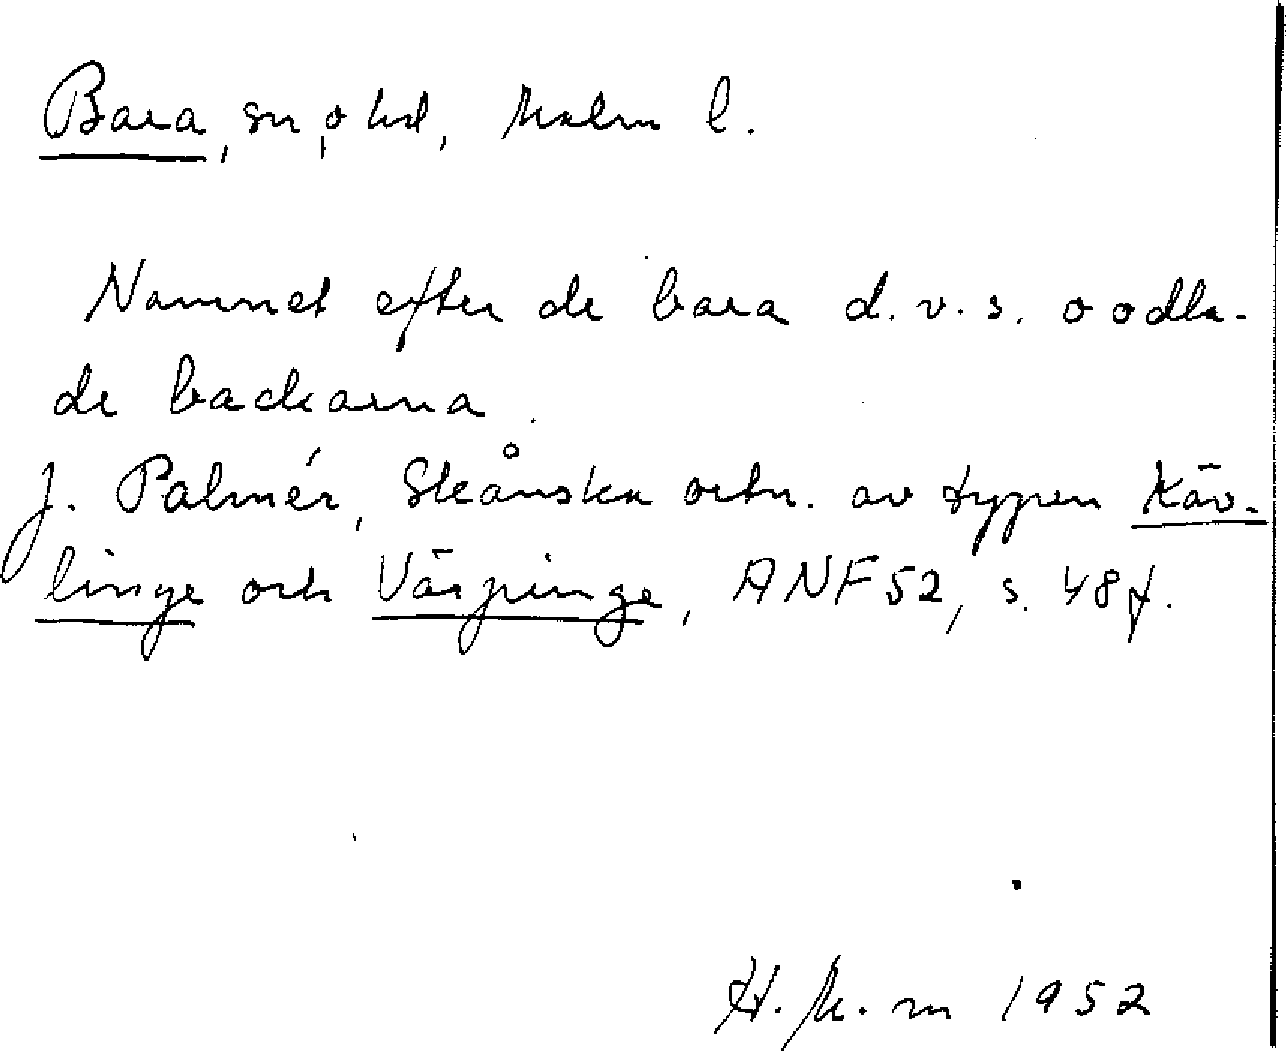 Bara, sn, o hd, Malm l.
Namnet efter de bara d.v.s. oodla-
de backarna.
J. Palmér, Skånska ortn. av typen Käv-
linge och Värpinge, ANF 52, s. 48 f.
H. M. m 1952